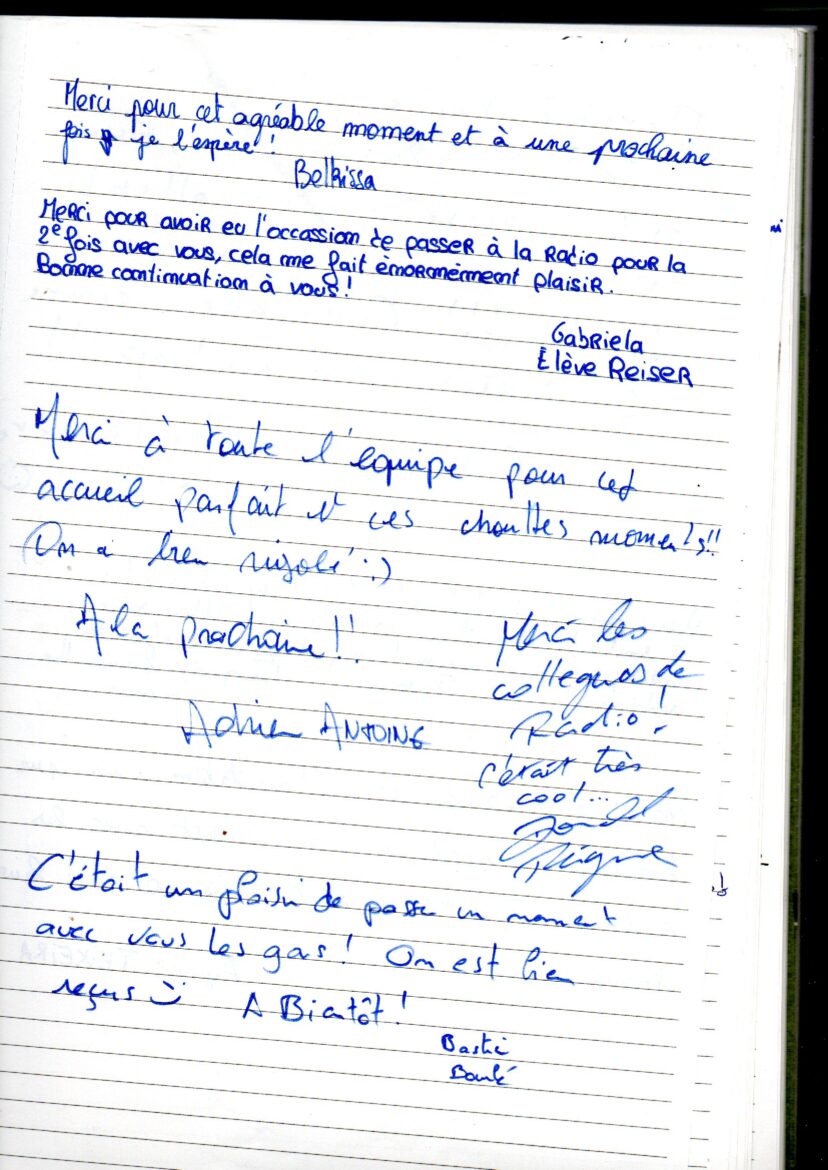 Merci pour cet agréable moment et à une prochaine
fois je l'espère !
Belkissa
Merci pour avoir eu l'occassion de passer à la Radio pour la
2e fois avec vous, cela me fait énormémment plaisir.
Bonne continuation à vous !
Gabriela
Elève Reiser
Merci à toute l'équipe pour cet
accueil parfait et ces chouttes moments !!
On a bien rigolé :)
A la prochaine !!
Adrien ANTOINE
Merci les
collegues de
Radio !
c'était très
cool...
C'était un plaisir de passer un moment
avec vous les gas ! On est bien
reçus
A Bientôt !